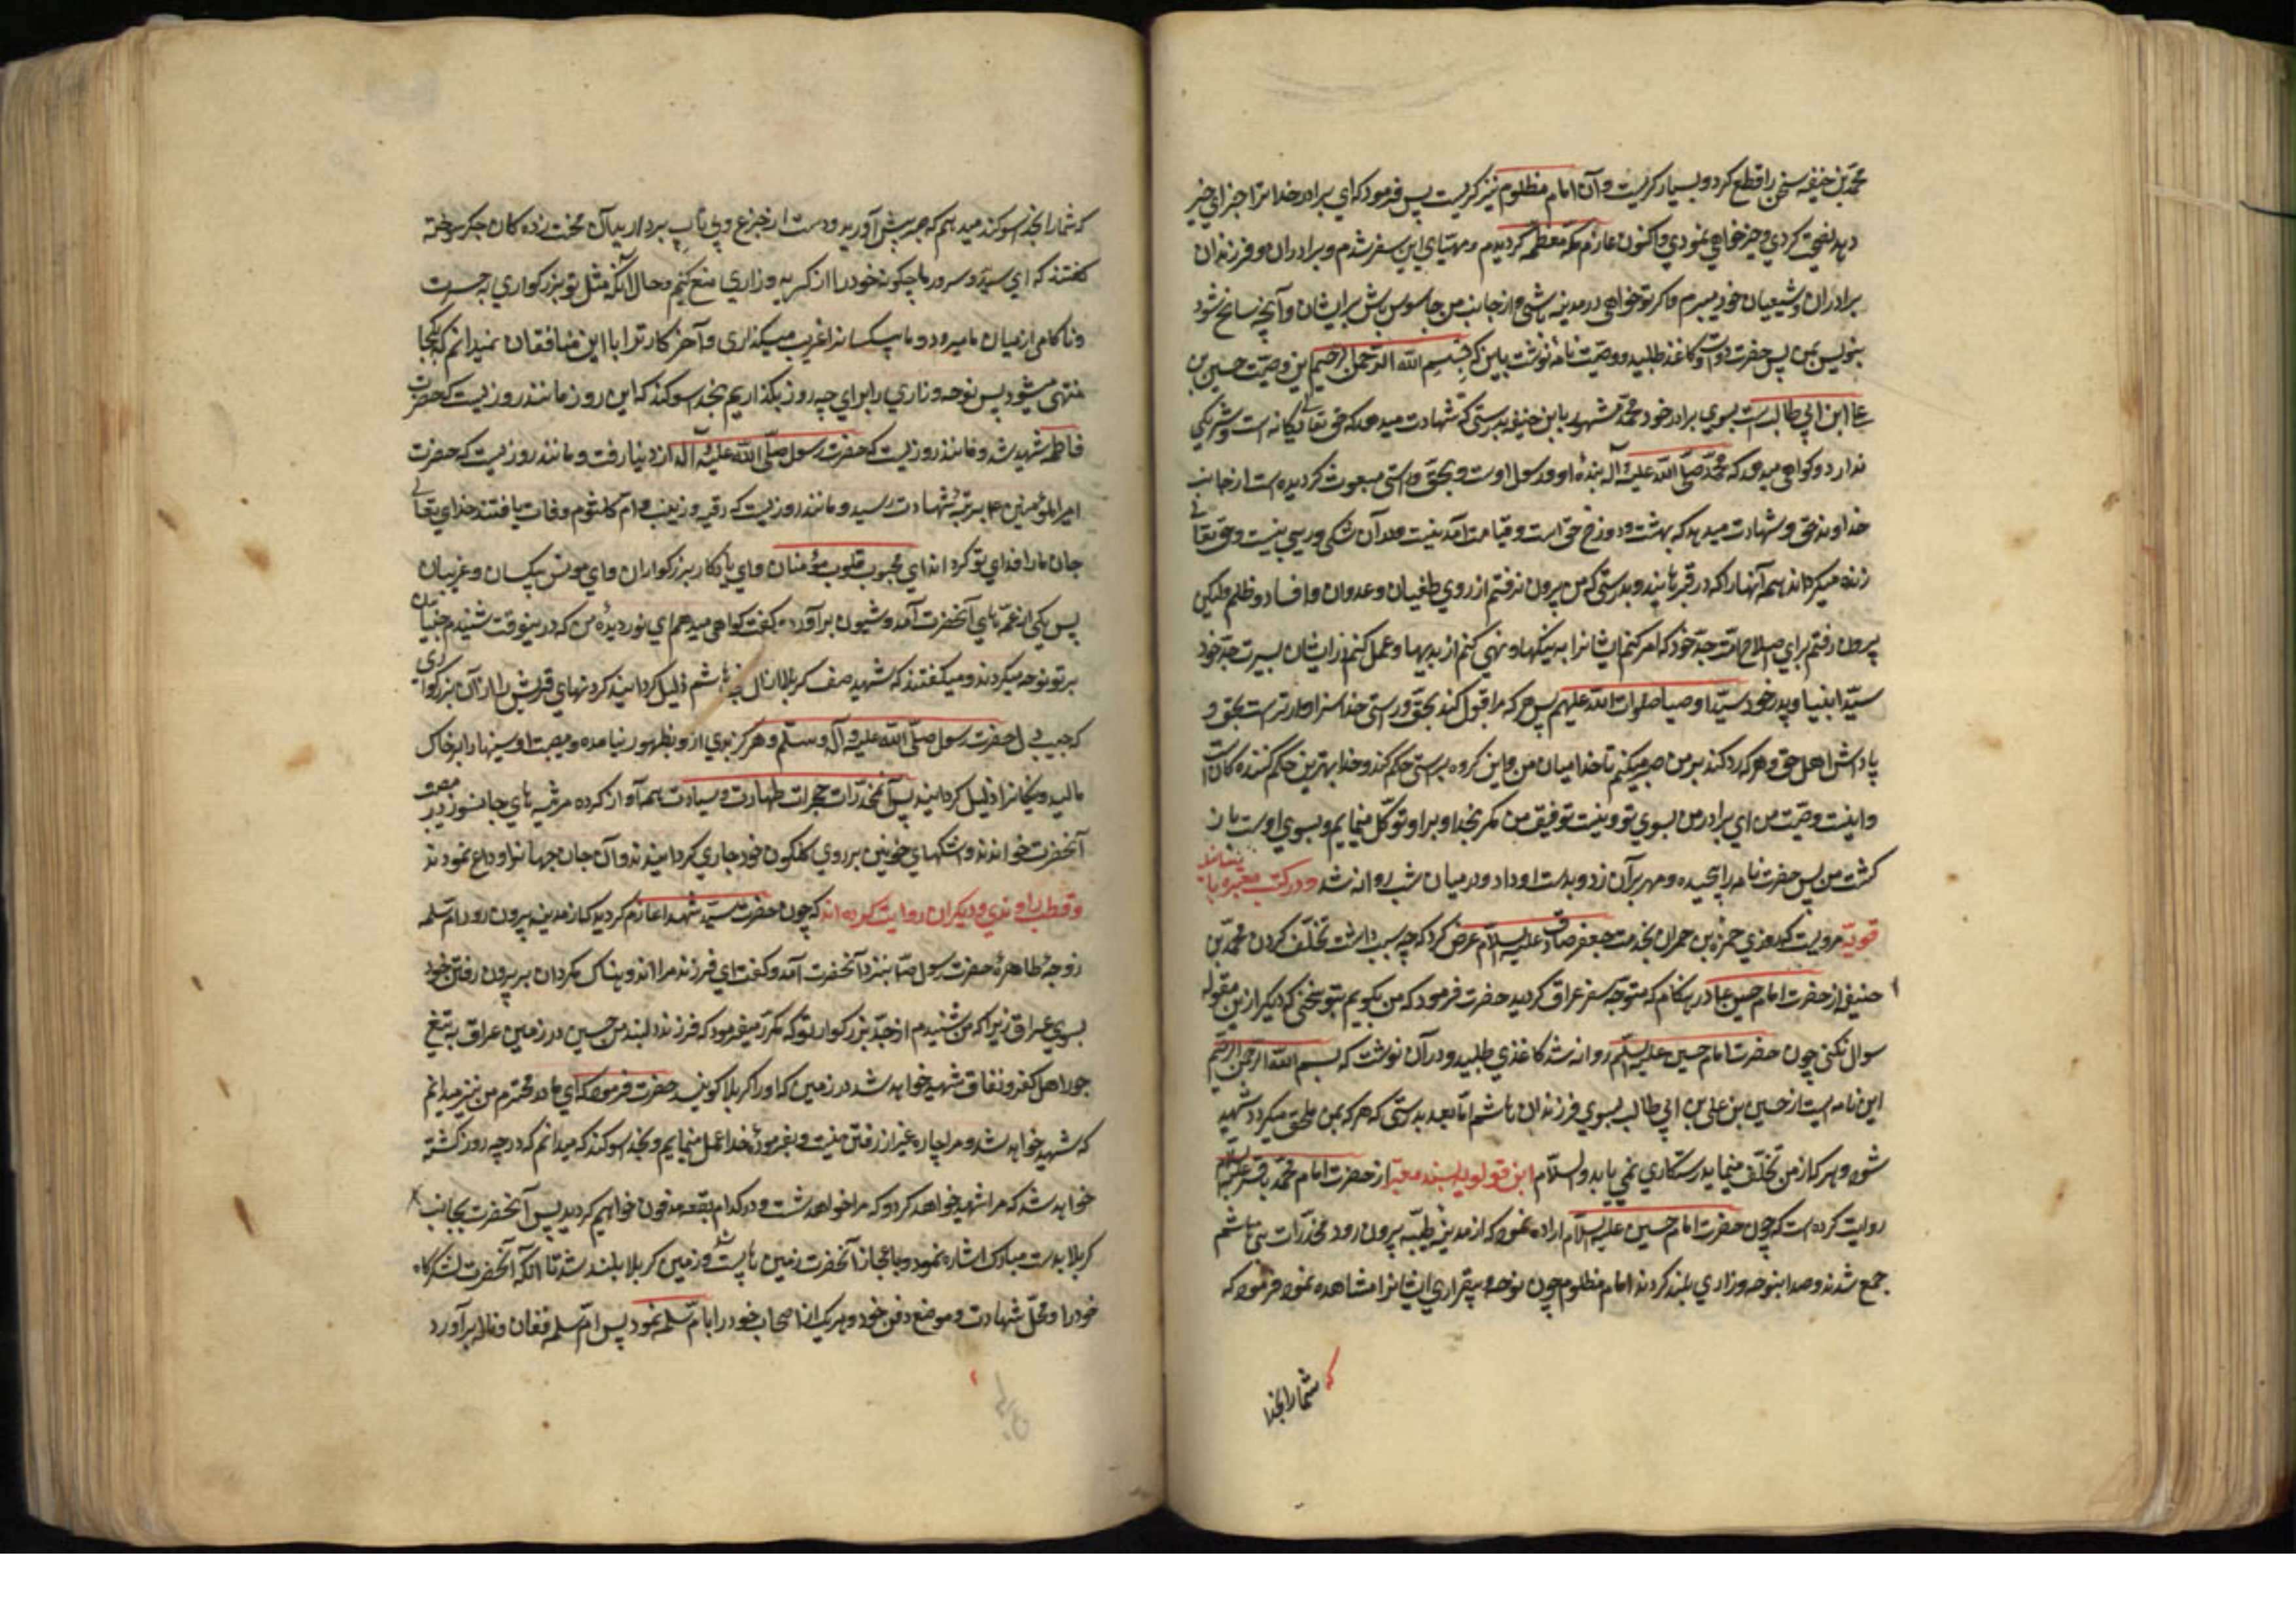 محمّد بن حنفیه سخن را قطع کرد و بسیار کریست و آن امام مظلوم نیز کریست پس فرمود که ای برادر خدا ترا جزای خیر
دهد نصیحت کردی و خیر خواهی نمودی و اکنون عازم مکّه معظمه کردیدم و مهیّای این سفر شدم و برادران و فرزندان
برادران و شیعیان خود میبرم و اکر تو خواهی در مدینه باش و از جانب من جاسوس باش بر ایشان و آنچه سانح شود
بنویس بمن پس حضرت دوات و کاغذ طلبید و وصیّت نامه نوشت باین که بسم الله الرّحمن الرّحیم این وصیّت حسین بن
علی ابن ابی طالب است بسوی برادر خود محمّد مشهور بابن حنفیه بدرستی که شهادت میدهد که حق تعالی یکانه است و شریکی
ندارد و کواهی میدهد که محمّد صلّی الله علیه و آله بندهٔ او و رسول اوست و بحق و راستی مبعوث کردیده است از جانب
خداوند حق و شهادت میدهد که بهشت و دوزخ حق است و قیامت آمدنیست و در آن شکی و ریبی نیست و حق تعالی
زنده میکرداند همه آنها را که در قبرهایند و بدرستی که من بیرون نرفتم از روی طغیان و عدوان و افساد و ظلم ولیکن
بیرون رفتم برای صلاح امّت جدّ خود که امر کنم ایشانرا به نیکیها و نهی کنم از بدیها و عمل کنم در ایشان بسیرت جدّ خود
سیّد انبیا و پدر خود سیّد اوصیا صلوات الله علیهم پس هر که مرا قبول کند بحق و راستی خدا سزاوارتر است بحق و
پاداش اهل حق و هر که رد کند بر من صبر میکنم تا خدا میان من و این کروه براستی حکم کند و خدا بهترین حکم کننده کان است
و اینست وصیّت من ای برادر من بسوی تو و نیست توفیق من مکر بخدا و بر او توکّل مینمایم و بسوی اوست باز
کشت من پس حضرت نامه را پیچیده و مهر بر آن زد و بدست او داد و در میان شب روانه شد و در کتب معتبره باسانید
قویّه مرویست که روزی حمزه بن حمران بخدمت جعفر صادق علیه السلام عرض کرد که چه سبب داشت تخلّف کردن محمّد بن
حنفیه از حضرت امام حسین ع در هنکام که متوجّه سفر عراق کردید حضرت فرمود که من بکویم بتو سخنی که دیکر ازین مقوله
سوال نکنی چون حضرت امام حسین علیه السلم روانه شد کاغذی طلبید و در آن نوشت که بسم الله الرّحمن الرّحیم
این نامه ایست از حسین بن علی بن ابی طالب بسوی فرزندان هاشم امّا بعد بدرستی که هر که بمن ملحق میکردد شهید
شود و هر که از من تخلّف مینماید رستکاری نمی یابد والسلام ابن قولویه بسند معتبر از حضرت امام محمّد باقر علیه السلام
روایت کرده است که چون حضرت امام حسین علیه السلام اراده نمود که از مدینه طیّبه بیرون رود مخدرات بنی هاشم
جمع شدند و صدا بنوحه و زاری بلند کردند امام مظلوم چون نوحه و بیقراری ایشانرا مشاهده نمود فرمود که
که شما را بخدا
که شما را بخدا سوکند میدهم که صبر پیش آورید و دست از جزع و بی تابی بردارید آن محنت زده کان جکر سوخته
کفتند که ای سیّد و سرور ما چکونه خود را از کریه و زاری منع کنیم و حال آنکه مثل تو بزرکواری به حسرت
و ناکامی از میان ما میرود و ما بیکسانرا غریب میکذاری و آخر کار ترا با این منافقان نمیدانم که بکجا
منتهی میشود پس نوحه و زاری را برای چه روز بکذاریم بخدا سوکند که این روز مانند روزیست که حضرت
فاطمه شهید شد و مانند روزیست که حضرت رسول صلّی الله علیه و آله از دنیا رفت و مانند روزیست که حضرت
امیرالمؤمنین ع بمرتبهٔ شهادت رسید و مانند روزیست که رقیه و زینب و امّ کلثوم وفات یافتند خدای تعالی
جان ما را فدای تو کرداند ای محبوب قلوب مؤمنان و ای یادکار بزرکواران و ای مونس بیکسان و غریبان
پس یکی از عمّه های آنحضرت آمد و شیون برآورد و کفت کواهی میدهم ای نور دیدهٔ من که درینوقت شنیدم جنیان
بر تو نوحه میکردند و میکفتند که شهید صف کربلا از آل هاشم ذلیل کردانید کردنهای قریش را از آن بزرکواری
که حبیب دل حضرت رسول صلّی الله علیه و آله و سلّم و هرکز بدی ازو بظهور نیامده و مصیبت او بینیها را بر خاک
مالید و نیکانرا ذلیل کردانید پس آن مخدّرات حجرات طهارت و سیادت هم آواز کرده مرثیه های جانسوز در مصیبت
آنحضرت خواندند و اشکهای خونین بر روی کلکون خود جاری کردانیدند و آن جان جهانرا وداع نمودند
و قطب راوندی و دیکران روایت کرده اند که چون حضرت سیّد شهدا عازم کردید که از مدینه بیرون رود امّ سلمه
زوجهٔ طاهرهٔ حضرت رسول ص بنزد آنحضرت آمد و کفت ای فرزند مرا اندوهناک مکردان به بیرون رفتن خود
بسوی عراق زیرا که من شنیدم از جدّ بزرکوار تو که مکرّر میفرمود که فرزند دلبند من حسین در زمین عراق به تیغ
جور اهل کفر و نفاق شهید خواهد شد در زمین که او را کربلا کویند حضرت فرمود که ای مادر محترم من نیز میدانم
که شهید خواهد شد و مرا چاره غیر از رفتن نیست و بفرمودهٔ خدا عمل مینمایم و بخدا سوکند که میدانم که در چه روز کشته
خواهد شد که مرا شهید خواهد کرد و که مرا خواهد کشت و در کدام بقعه مدفون خواهم کردید پس آنحضرت بجانب
کربلا بدست مبارک اشاره نمود و باعجاز آنحضرت زمین ها پست شد و زمین کربلا بلند شد تا آنکه آنحضرت لشکرکاه
خود را و محلّ شهادت و موضع دفن خود و هر یک از اصحاب خود را بامّ سلمه نمود پس امّ سلمه فغان و ناله برآورد